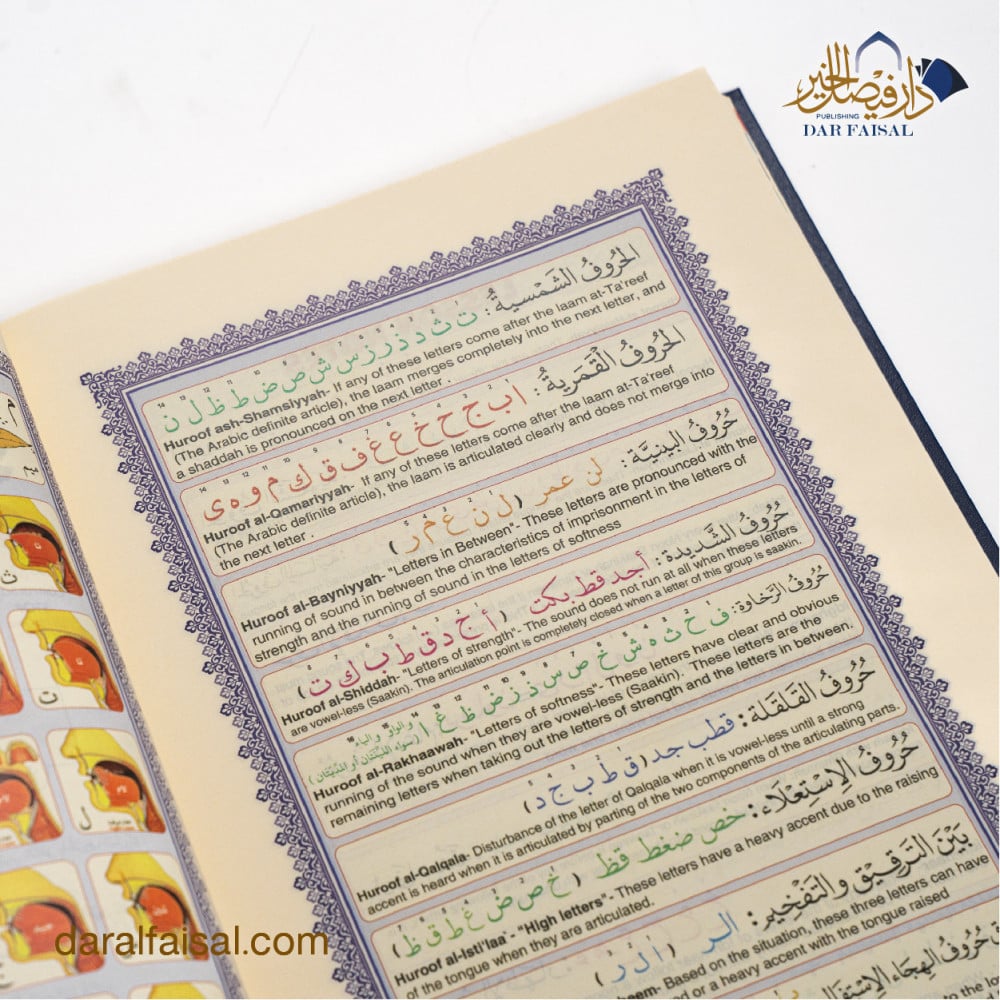 دار فيصل الخير
PUBLISHING
DAR FAISAL
الحُرُوفُ الشَّمْسِيةُ: ت ث د ذ ر ز س ش ص ض ط ظ ل ن
Huroof ash-Shamsiyyah- If any of these letters come after the laam at-Ta'reef
(The Arabic definite article), the laam merges completely into the next letter, and
a shaddah is pronounced on the next letter .
الحُرُوفُ الْقَمَرِيَةُ: ا ب ج ح خ ع غ ف ق ك م و ه ى
Huroof al-Qamariyyah- If any of these letters come after the laam at-Ta'reef
(The Arabic definite article), the laam is articulated clearly and does not merge into
the next letter .
حُرُوفُ البَينِيَّة: لن عمر (لْ نْ عْ مْ رْ)
Huroof al-Bayniyyah- "Letters in Between"- These letters are pronounced with the
running of sound in between the characteristics of imprisonment in the letters of
strength and the running of sound in the letters of softness
حُرُوفُ الشَّدِيدة: أجد قط بكت (أْ جْ دْ قْ طْ بْ كْ تْ)
Huroof al-Shiddah- "Letters of strength"- The sound does not run at all when these letters
are vowel-less (Saakin). The articulation point is completely closed when a letter of this group is saakin.
حُرُوفُ الرَّخَاوَة: ف ح ث ه ش خ ص س ذ ز ض ظ غ ا
والواو والياء
(سواء المدِّيَّتان أو اللَّيِّنَتان)
Huroof al-Rakhaawah- "Letters of softness"- These letters have clear and obvious
running of the sound when they are vowel-less (Saakin). These letters are the
remaining letters when taking out the letters of strength and the letters in between.
حُرُوفُ القَلقَلة: قطب جد (قْ طْ بْ جْ دْ)
Huroof al-Qalqala- Disturbance of the letter of Qalqala when it is vowel-less until a strong
accent is heard when it is articulated by parting of the two components of the articulating parts.
حُرُوفُ الاِسْتِعْلَاء: خص ضغط قظ (خْ صْ ضْ غْ طْ قْ ظْ)
Huroof al-Isti'laa- "High letters"- These letters have a heavy accent due to the raising
of the tongue when they are articulated.
بَيْنَ التَرقِيق والتَفْخِيم: الر (ا ل ر)
Based on the situation, these three letters can have
or a heavy accent with the tongue raised
حُرُوفُ الهِجَاء
ث
ت
ل
daralfaisal.com